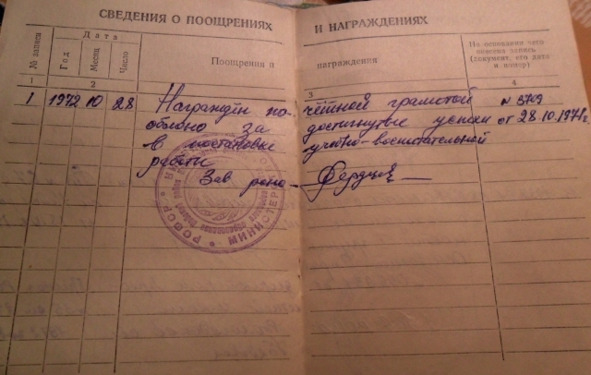 СВЕДЕНИЯ О ПООЩРЕНИЯХ И НАГРАЖДЕНИЯХ
№ записи
Дата
Год
Месяц
Число
Поощрения и награждения
На основании чего внесена запись (документ, его дата и номер)
1 2 3 4
1 1972 10 28 Награждён почётной грамотой № 3709
облоно за достигнутые успехи от 28.10.1971г.
в постановке учебно-воспитательной
работы
Зав роно